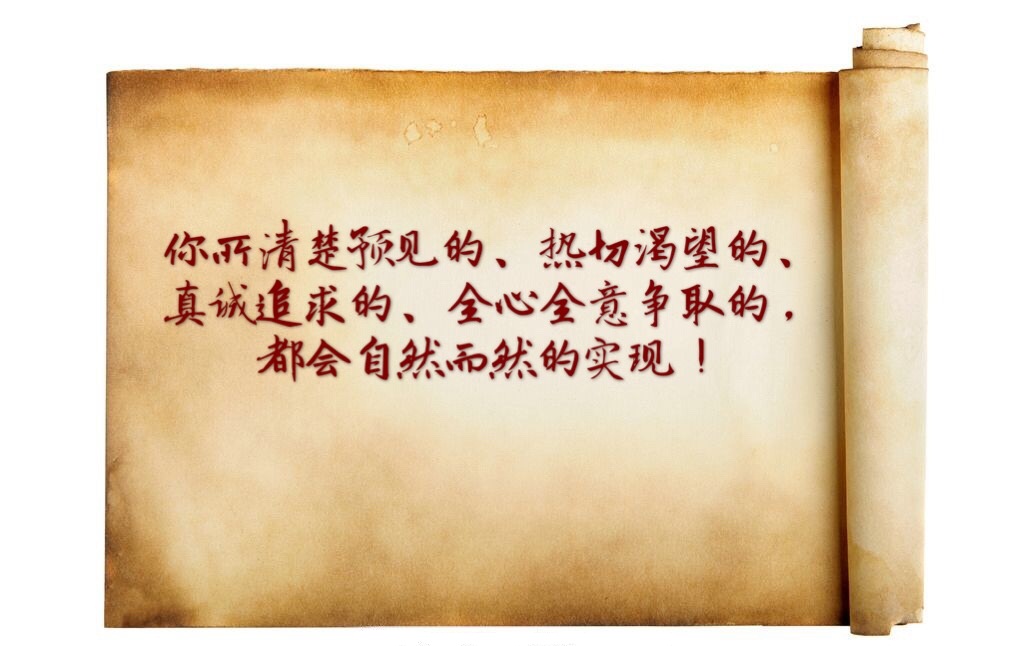 你所清楚预见的、热切渴望的、
真诚追求的、全心全意争取的，
都会自然而然的实现！